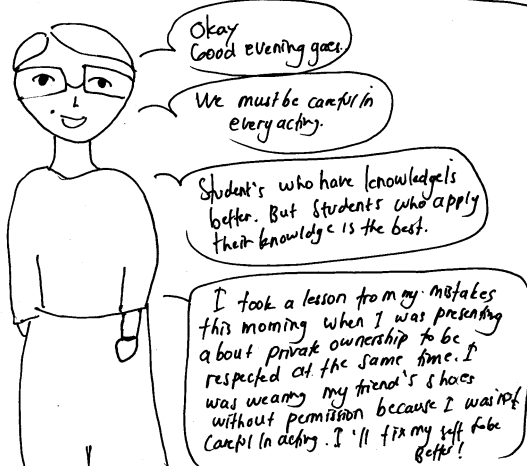 Okay
Good evening gaes.
We must be careful in
every acting.
Student's who have knowledge is
better. But Students who apply
their knowldge is the best.
I took a lesson from my mistakes
this morning when I was presenting
about private ownership to be
respected at the same time. I
was wearing my friend's shoes
without permission because I was not
Carefl In acting. I'll fix my self to be
Better!